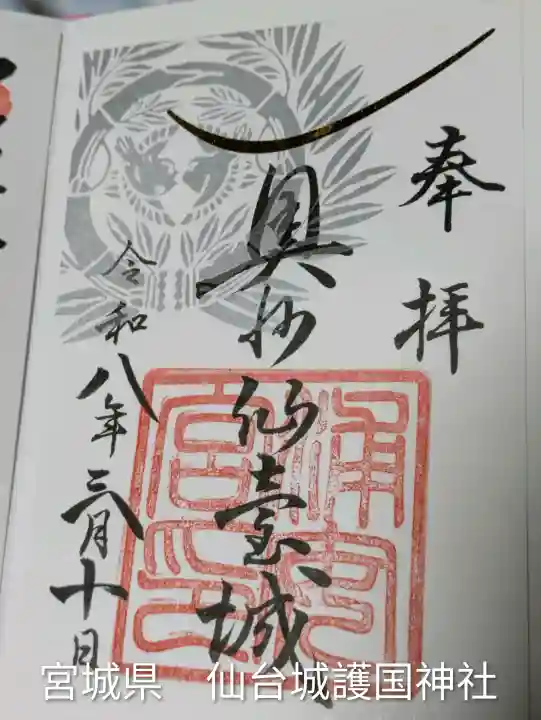 奉拝
奥州仙臺城
浦安
宮印
令和八年三月十日
宮城県 仙台城護国神社